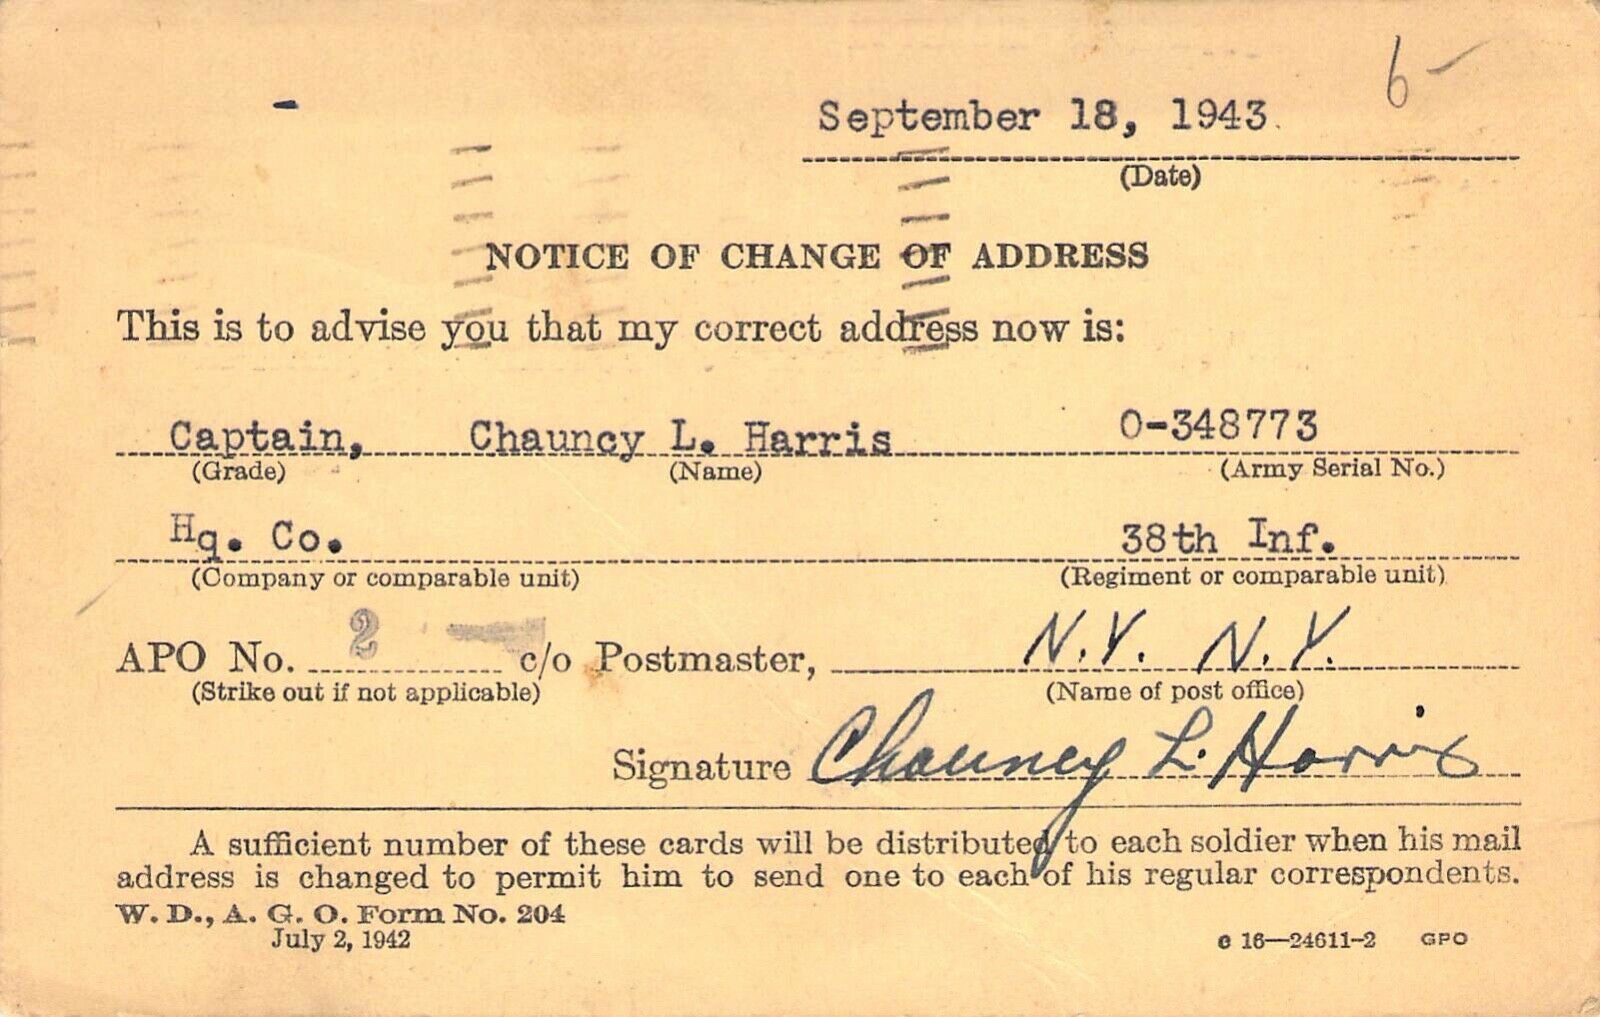 6-
September 18, 1943.
(Date)
NOTICE OF CHANGE OF ADDRESS
This is to advise you that my correct address now is:
Captain, Chauncy L. Harris O-348773
(Grade) (Name) (Army Serial No.)
Hq. Co. 38th Inf.
(Company or comparable unit) (Regiment or comparable unit)
APO No. 2 c/o Postmaster, N.Y. N.Y.
(Strike out if not applicable) (Name of post office)
Signature Chauncy L. Harris
A sufficient number of these cards will be distributed to each soldier when his mail
address is changed to permit him to send one to each of his regular correspondents.
W. D., A. G. O. Form No. 204
July 2, 1942 c 16—24611-2 GPO